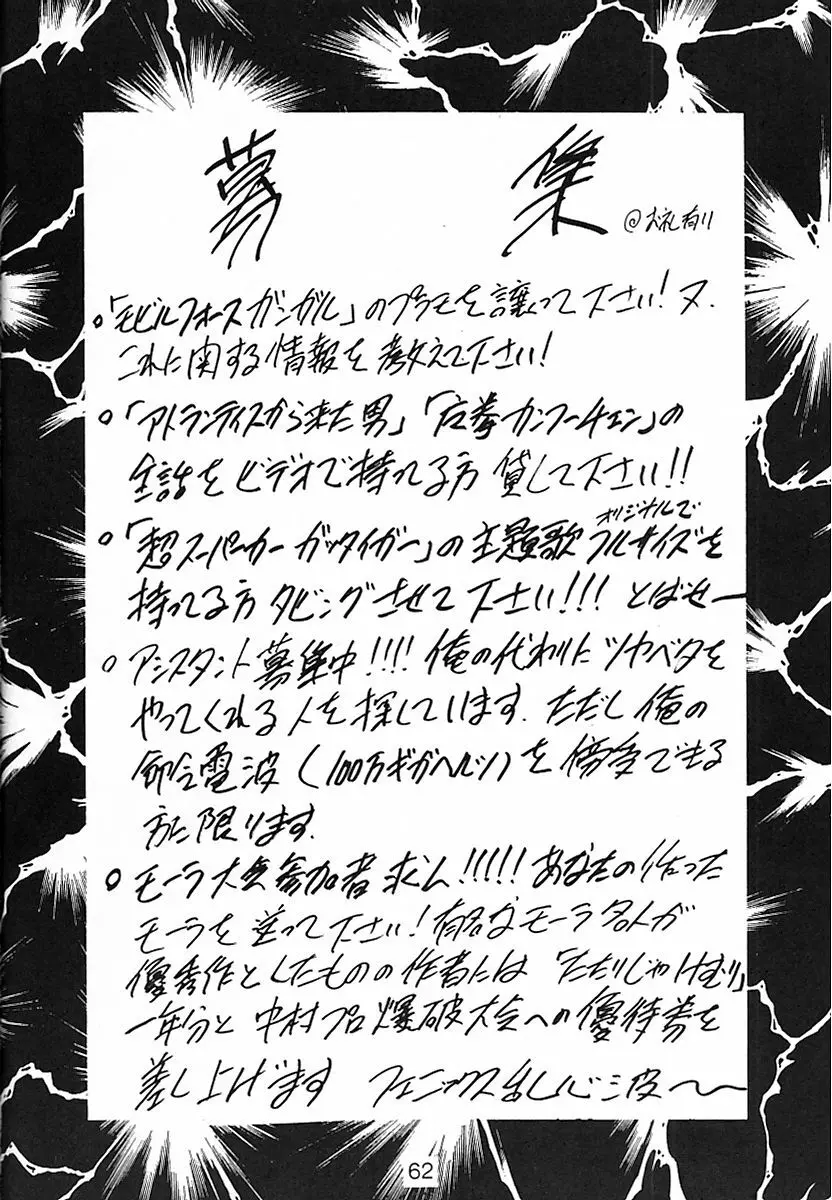 募集
@お礼有り
○「モビルフォースガンガル」のプラモを譲って下さい!又、
これに関する情報を教えて下さい!
○「アトランティスから来た男」「右拳カンフーチェン」の
全話をビデオで持ってる方貸して下さい!!
オリジナルで
○「超スーパーカーガッタイガー」の主題歌フルサイズを
持ってる方ダビングさせて下さい!!! とばせー
○アシスタント募集中!!!! 俺の代わりにツヤベタを
やってくれる人を探しています.ただし俺の
命令電波(100万ギガヘルツ)を傍受できる
方に限ります.
○モーラ大会参加者求ム!!!!!あなたの作った
モーラを塗って下さい!有名なモーラ名人が
優秀作としたものの作者には「ただりじゃけむり」
一年分と中村プロ爆破大会への優待券を
差し上げます フェニックス乱心波〜〜
62